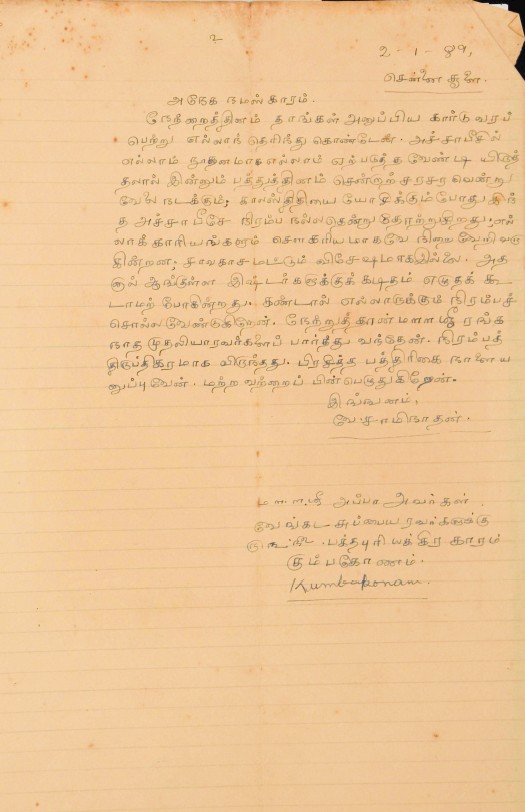 2
2-1-89,
சென்னை
அநேக நமஸ்காரம்.
நேற்றைத்தினம் தாங்கள் அனுப்பிய கார்டு வரப்
பெற்று எல்லாந் தெரிந்து கொண்டேன். அச்சாபீசில்
எல்லாம் நூதனமாக எல்லாம் ஏற்படுத்த வேண்டி யிருந்
ததலால் இன்னும் பத்துத்தினம் சென்றாற் சரசரவென்று
வேலை நடக்கும்; காலஸ்திதியை யோசிக்கும்போது இந்
த அச்சாபீசே நிரம்ப நல்லதென்று தோற்றுகிறது; எல்
லாக் காரியங்களும் சௌகரியமாகவே நிறைவேறி வரு
கின்றன; சாவகாசமட்டும் விசேஷமாகஇல்லை. அத
னால் ஆங்குள்ள இஷ்டர்களுக்குக் கடிதம் எழுதக் கூ
டாமற் போகின்றது. கண்டால் எல்லாருக்கும் நிரம்பச்
சொல்லவேண்டுகிறேன். நேற்றுத்தான் ம௱௱ஸ்ரீ ரங்க
நாத முதலியாரவர்களைப் பார்த்து வந்தேன். நிரம்பத்
திருப்திகரமாக விருந்தது. பிரதித்த பத்திரிகை நாளைய
னுப்புவேன். மற்ற வற்றைப் பின்பெழுதுகிறேன்.
இங்ஙனம்,
வே. சாமிநாதன்.
ம௱௱ஸ்ரீ அப்பா அவர்கள்
வேங்கட சுப்பையரவர்களுக்கு
பக்தபுரி யக்கிரகாரம்
கும்பகோணம்.
Kumbakonam.